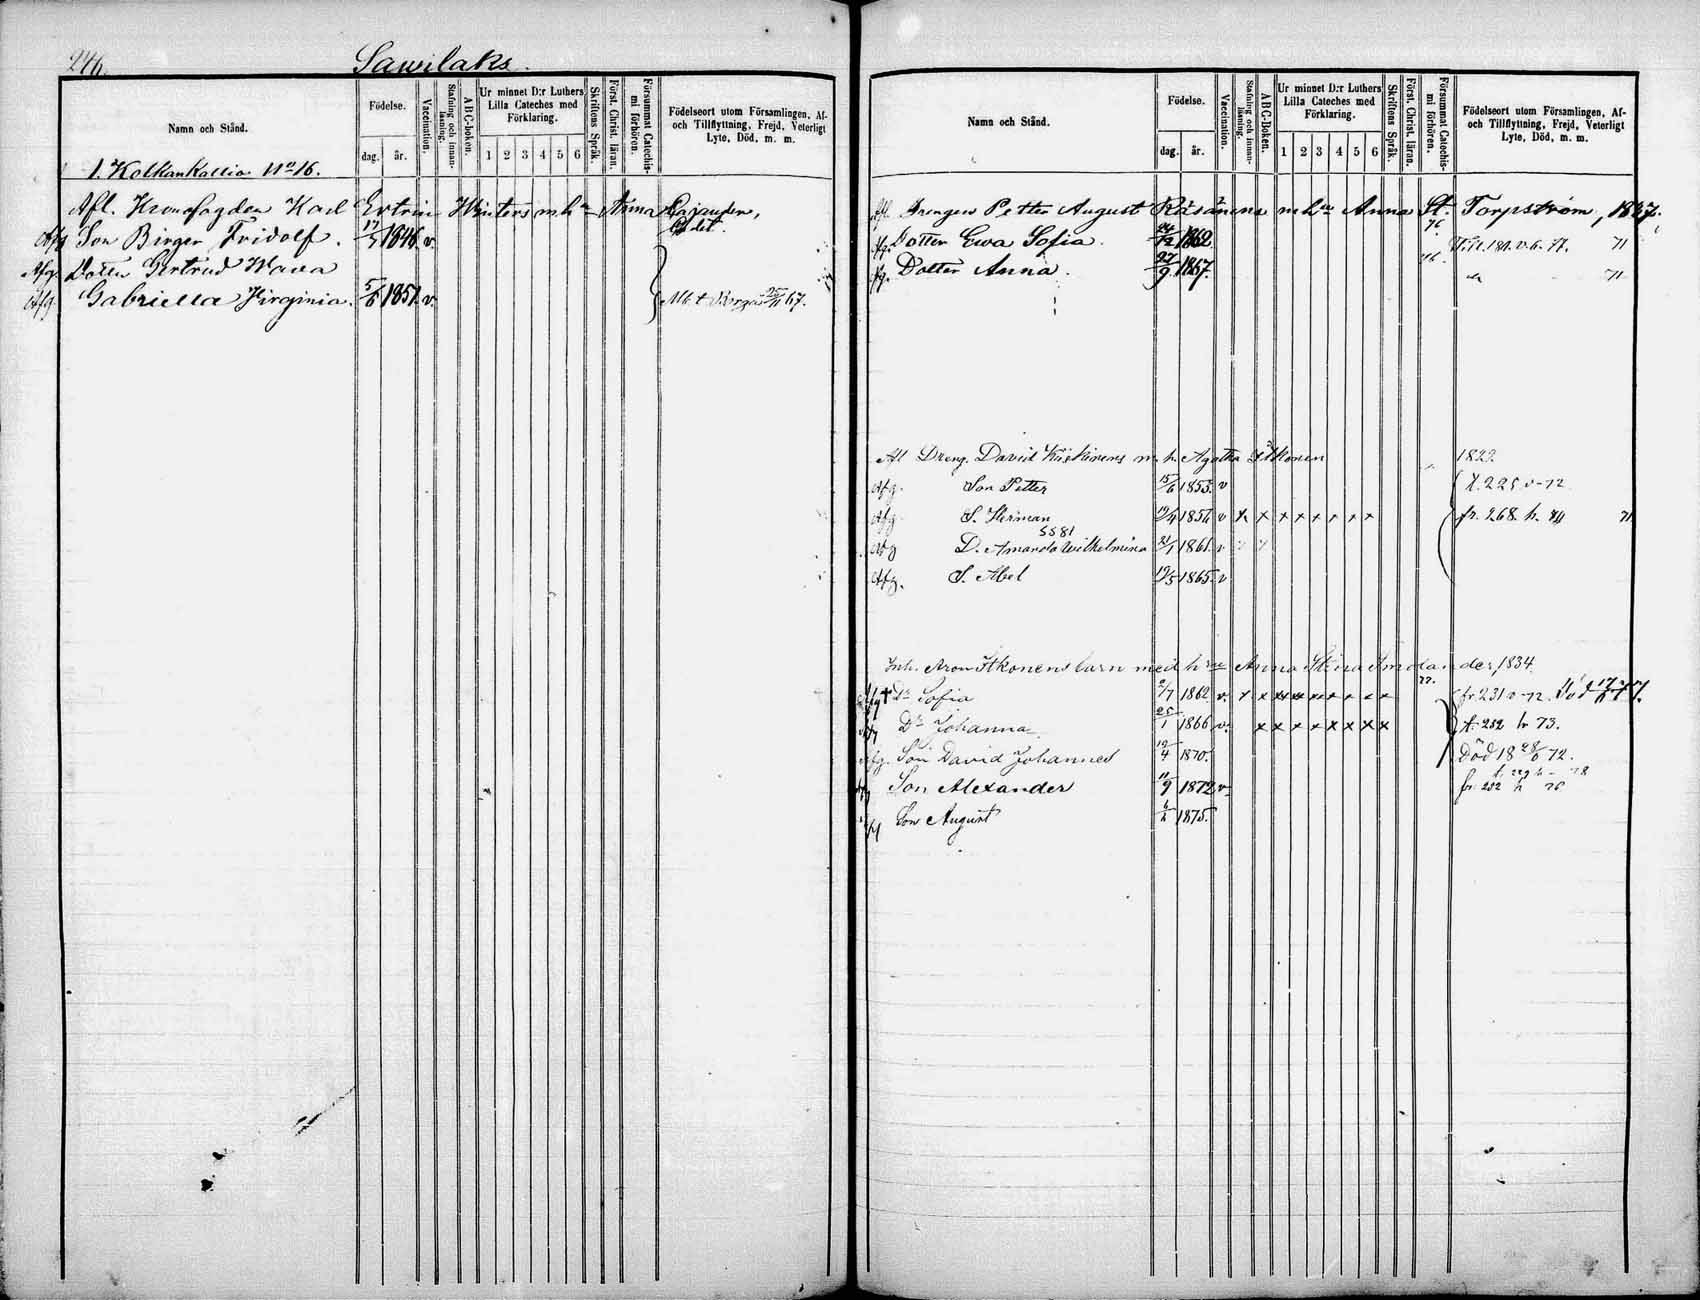 246.
Sawilaks.
Namn och Stånd.
Födelse.
dag.
år.
Vaccination.
Stafning och innan-läsning.
ABC-boken.
Ur minnet D:r Luthers Lilla Cateches med Förklaring.
1 2 3 4 5 6
Skriftens Språk.
Först. Christ. läran.
Försummat Catechis-mi förhören.
Födelseort utom Församlingen, Af- och Tillflyttning, Frejd, Veterligt Lyte, Död, m. m.
1. Kolkankallio No 16.
Afl. Kronofogden Karl Ertrin Winters m. hu Anna Cajander,
Afg Son Birger Fridolf. 1846. v. Cadet.
Afg. Dotter Gertrud Wava
Afg. Gabriella Virginia. 5/6 1851. v. Borgå 25/11 67.
Namn och Stånd.
Födelse.
dag.
år.
Vaccination.
Stafning och innan-läsning.
ABC-boken.
Ur minnet D:r Luthers Lilla Cateches med Förklaring.
1 2 3 4 5 6
Skriftens Språk.
Först. Christ. läran.
Försummat Catechis-mi förhören.
Födelseort utom Församlingen, Af- och Tillflyttning, Frejd, Veterligt Lyte, Död, m. m.
Afl. Drengen Petter August Räsänens m. hu Anna St. Torpström, 1837.
Afg. Dotter Ewa Sofia. 24/12 1862 76 71
Afg. Dotter Anna. 27/9 1867. 76. 71
Afl Dreng. David Kiiskinens m. h. Agatha Itkonen 1822
Afg. Son Petter 15/6 1853. v t. 225 v-72
Afg. S. Herman 19/4 1856 v x x x x x x x x fr. 268. h. 71
SS81
Afg D. Amanda Wilhelmina 21/1 1861. v
Afg. S. Abel 19/5 1865. v
Inh. Aron Itkonens barn med hu Anna Stina Smolander, 1834.
77.
Afg † Dr Sofia 2/7 1862 v. x x x x x x x x fr. 231 v-72. Död 77.
Afg Dr Johanna 25/1 1866 v. x x x x x x x x t. 252 h 73.
Afg. Son David Johannes 19/4 1870. Död 18 28/6 72.
Afg Son Alexander 11/9 1872 v fr. 252 h 76
t. 229 h - 78
Afg Son August 1875.